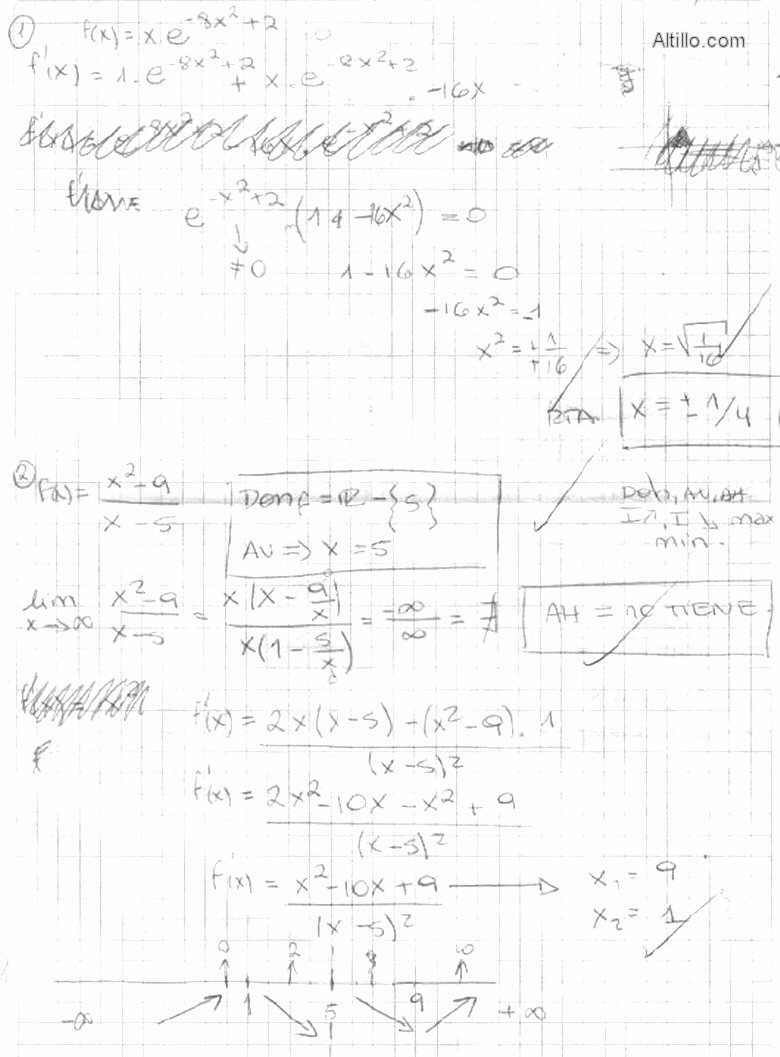 Altillo.com
① f(x) = x.e^{-8x²+2}
f'(x) = 1.e^{-8x²+2} + x.e^{-8x²+2} . -16x
e^{-x²+2} (1 + -16x²) = 0
↓
≠0 1 - 16x² = 0
-16x² = -1
x² = +1/+16 => x = √(1/16)
RTA x = ± 1/4
② f(x) = (x²-9)/(x-5)
Domf = R - {5}
AV => x = 5
Dom, AV, AH
I↗, I↘ max
min.
lim x→∞ (x²-9)/(x-5) = x(x - 9/x)/x(1 - 5/x) = -∞/∞ = ∄
AH = no TIENE
f'(x) = (2x(x-5) - (x²-9).1)/(x-5)²
f'(x) = (2x²-10x-x²+9)/(x-5)²
f'(x) = (x²-10x+9)/(x-5)² → x₁ = 9
x₂ = 1
0 2 8 10
1 5 9
-∞ +∞